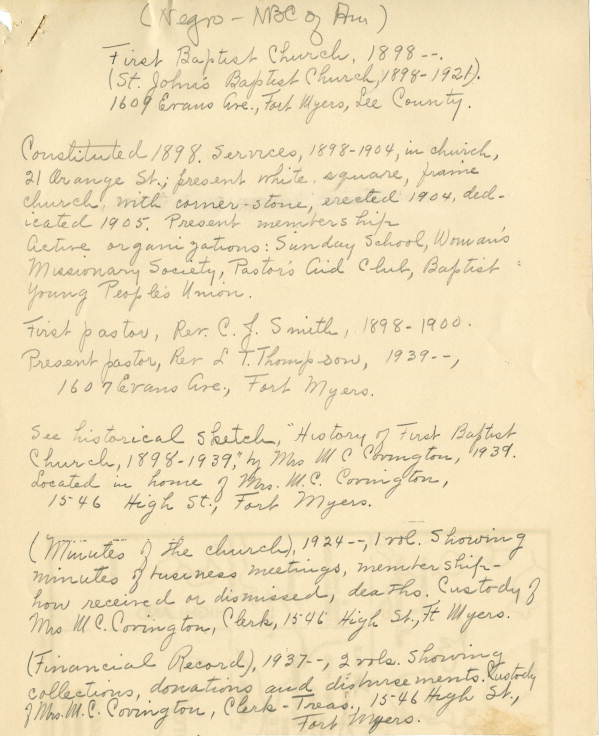 (Negro - NBC of Am)
First Baptist Church, 1898--.
(St. John's Baptist Church, 1898-1921).
1609 Evans Ave., Fort Myers, Lee County.
Constituted 1898. Services, 1898-1904, in church,
21 Orange St.; present white, square, frame
church, with corner-stone, erected 1904, ded-
icated 1905. Present membership
Active organizations: Sunday School, Woman's
Missionary Society, Pastor's Aid Club, Baptist
Young People's Union.
First pastor, Rev. C. J. Smith, 1898-1900.
Present pastor, Rev L T. Thompson, 1939--,
1607 Evans Ave., Fort Myers.
See historical sketch, "History of First Baptist
Church, 1898-1939," by Mrs M C Covington, 1939.
Located in home of Mrs. M.C. Covington,
1546 High St., Fort Myers.
(Minutes of the church), 1924--, 1 vol. Showing
minutes of business meetings, membership-
how received or dismissed, deaths. Custody of
Mrs M.C. Covington, Clerk, 1546 High St., Ft Myers.
(Financial Record), 1937--, 2 vols. Showing
collections, donations and disbursements. Custody
of Mrs. M.C. Covington, Clerk-Treas., 1546 High St.,
Fort Myers.